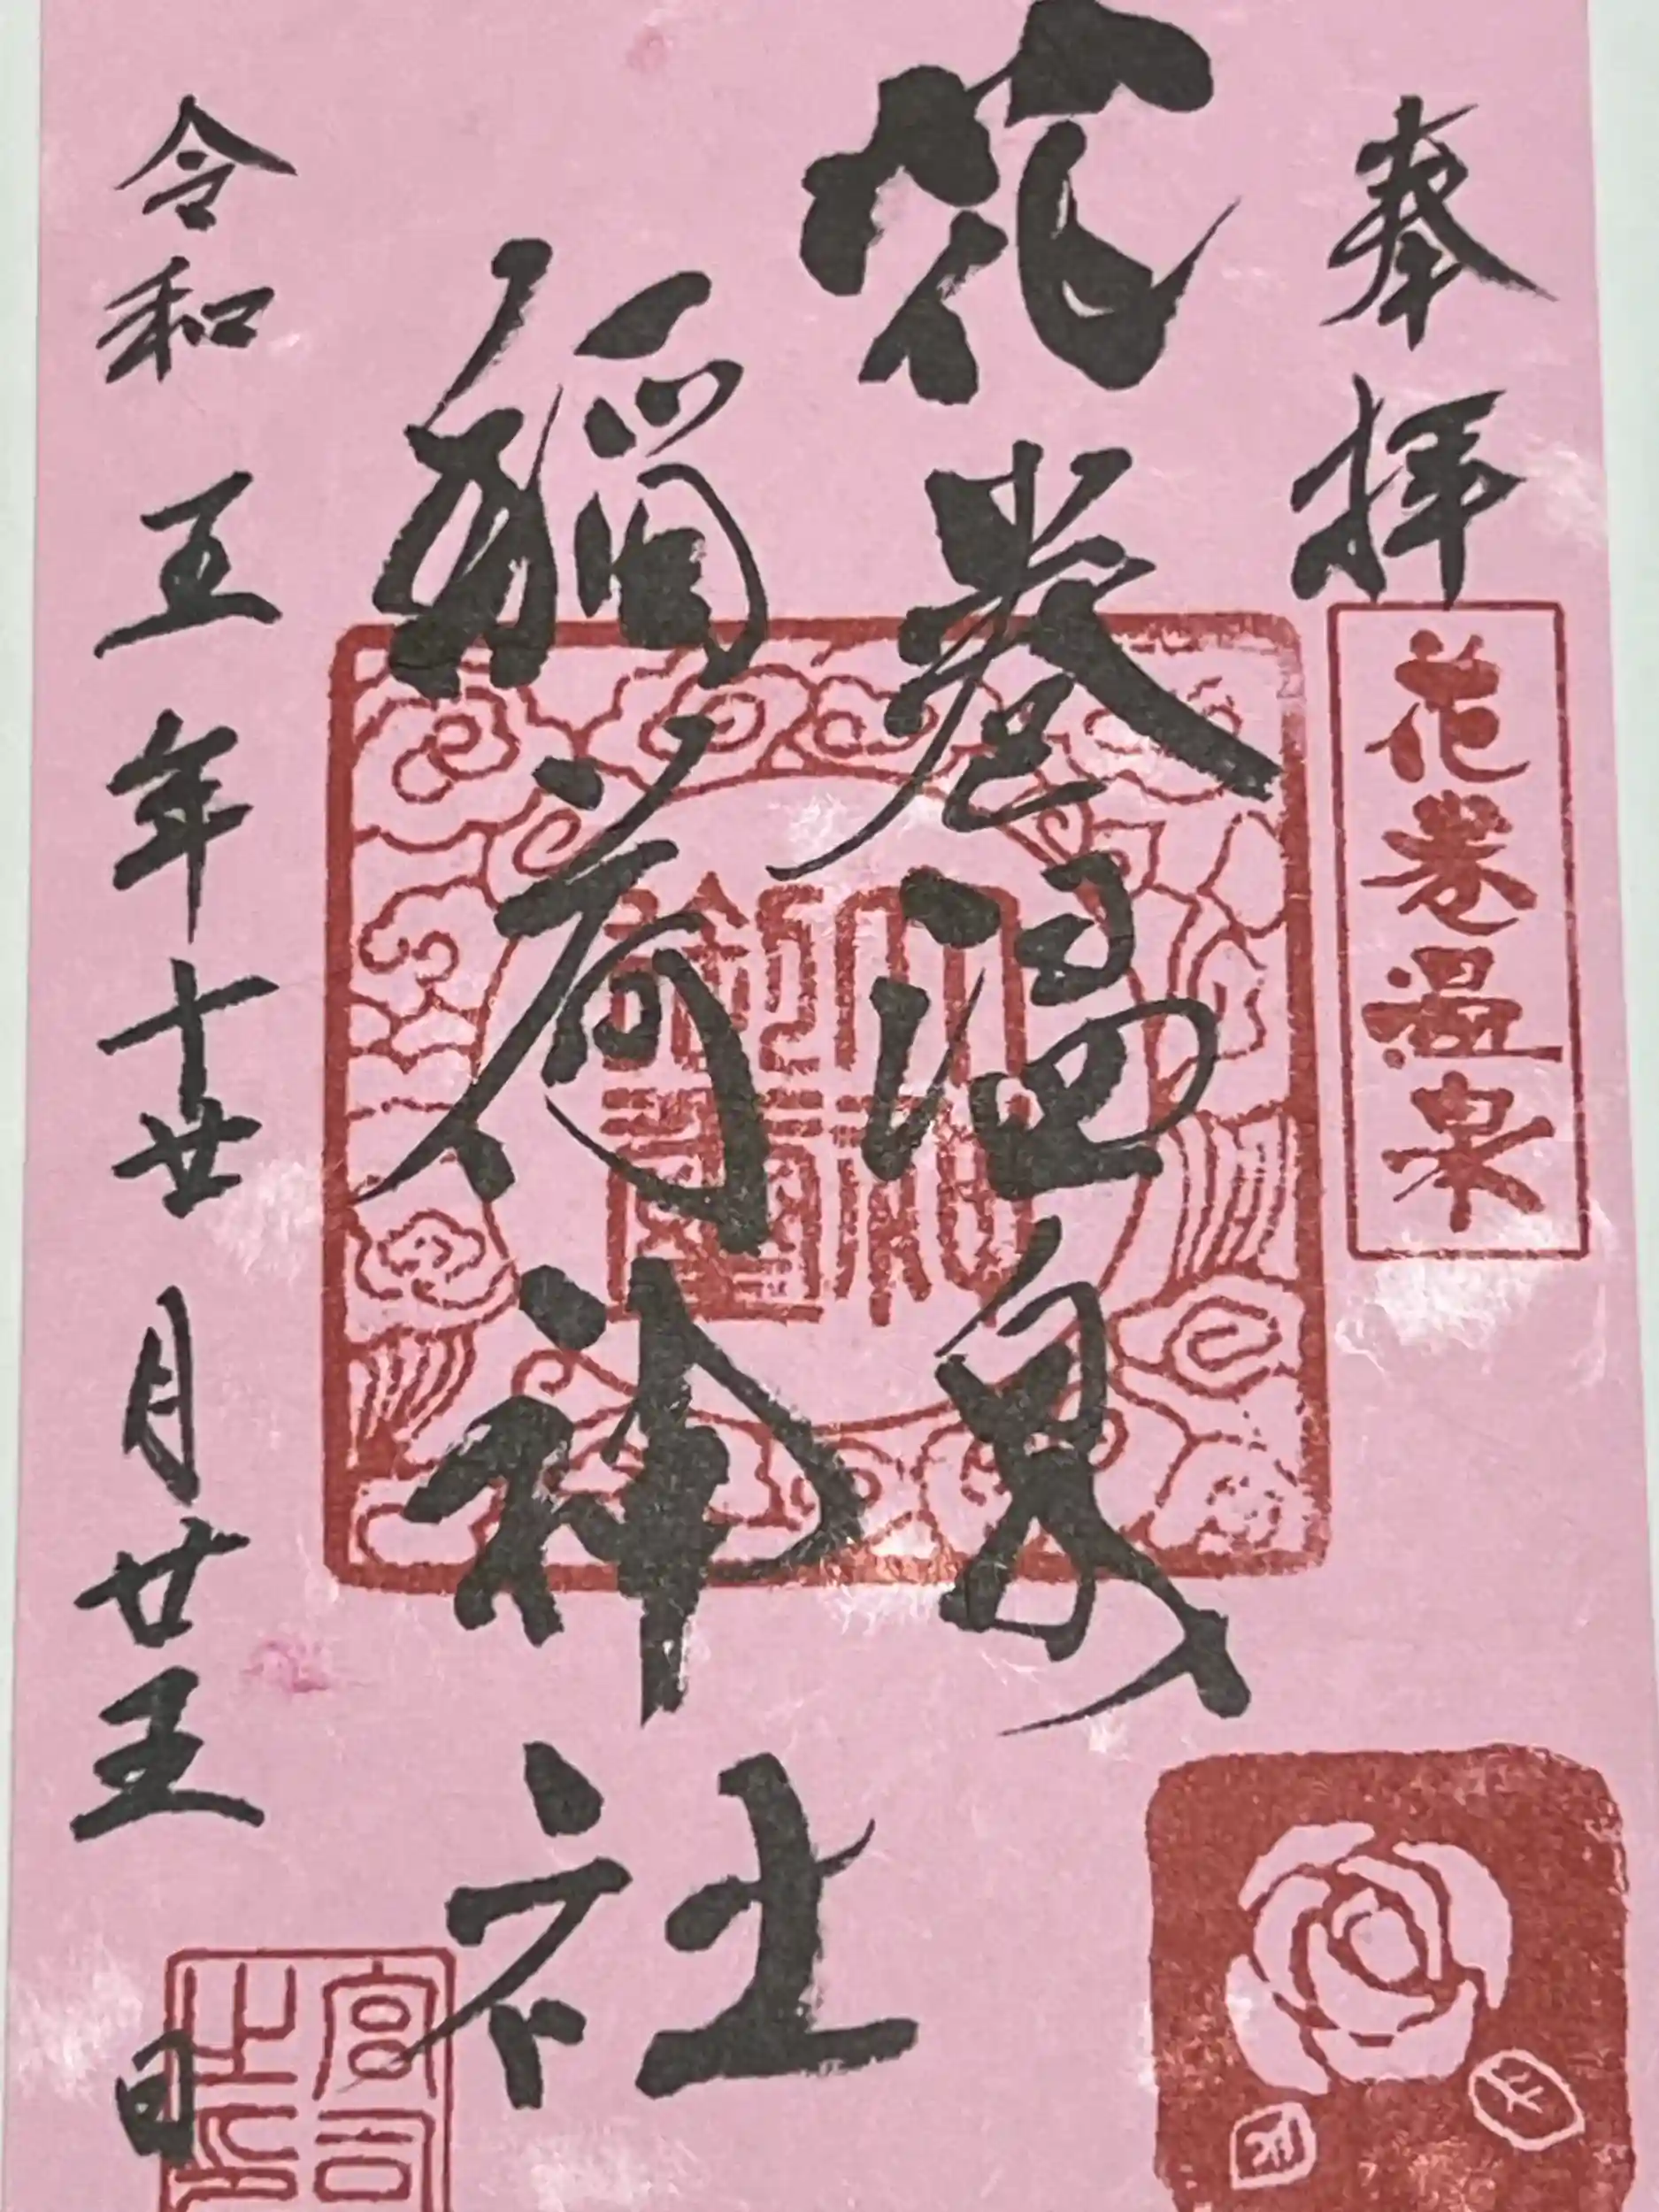 奉拝
花巻温泉
花巻温泉
稲荷神社
令和五年十廿月廿五日
宮司之印